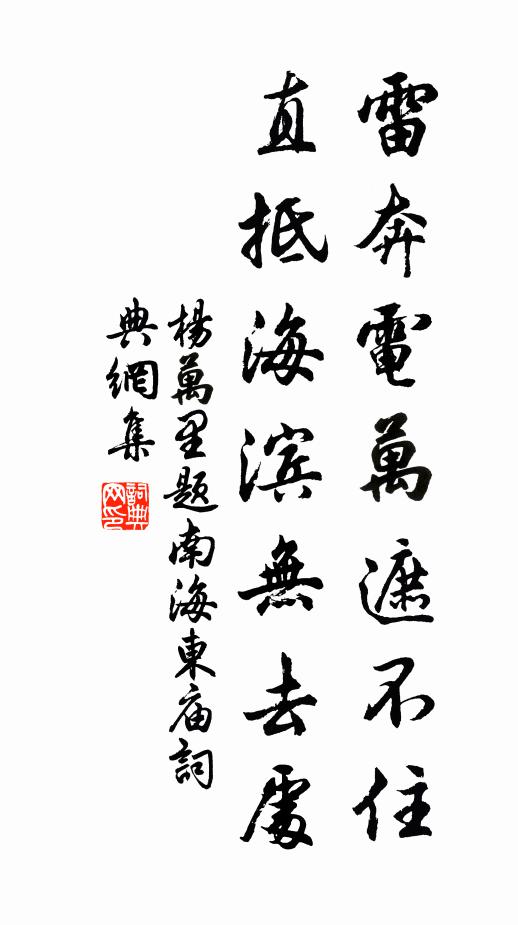 雷奔電萬遮不住
直抵海滨無去處
楊萬里题南海東庙詞
典網集
詞典网印